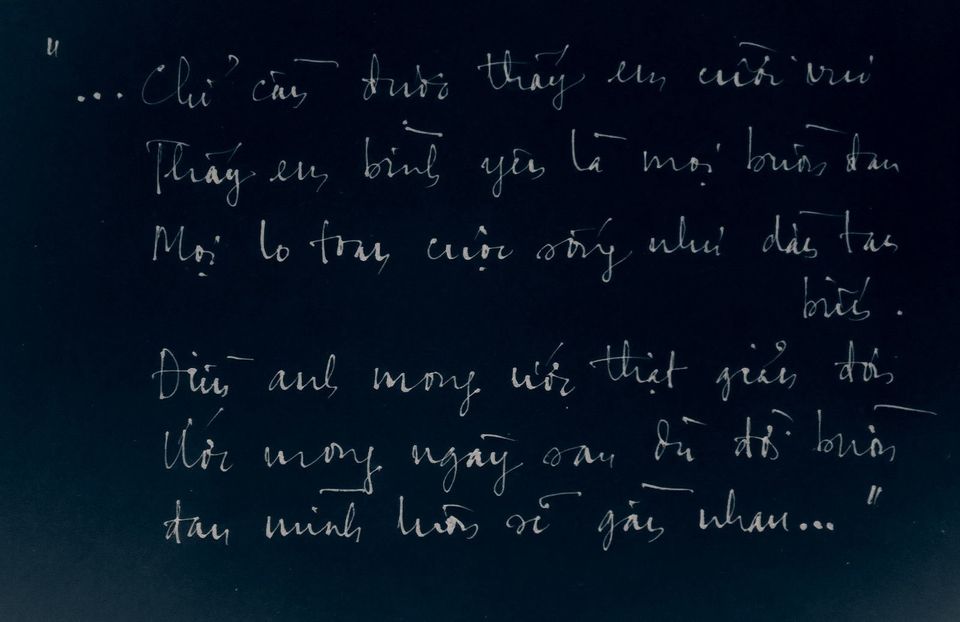 "... Chỉ cần được thấy em cười vui
Thấy em bình yên là mọi buồn đau
Mọi lo toan cuộc sống như dần tan
biến.
Điều anh mong ước thật giản đơn
Ước mong ngày sau dù đổi buồn
đau mình luôn sẽ gần nhau..."